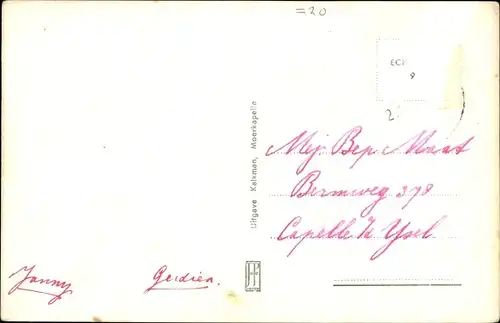 =20
ECH
2
Uitgave Kalkman, Moerkapelle
Mej. Bep. Maat
Bermweg 378
Capelle 7e Ysel
Janny Gerdien.